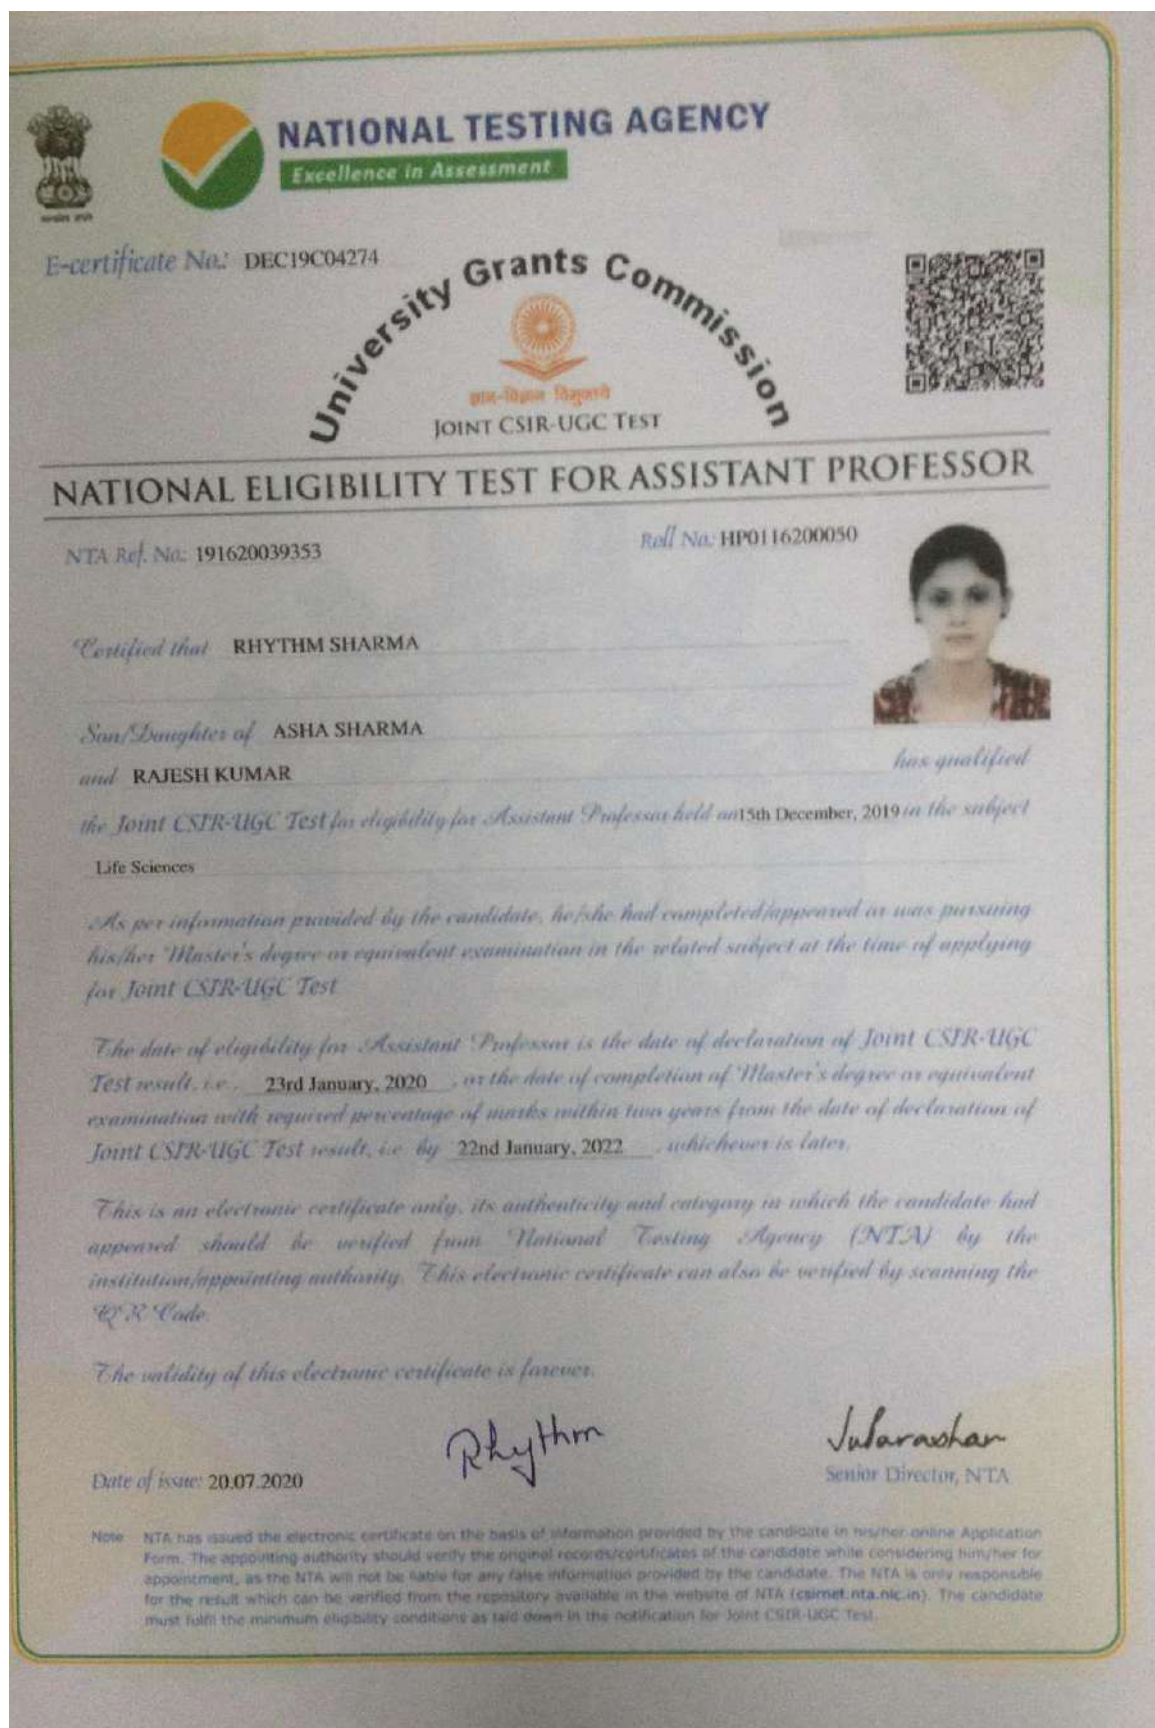 NATIONAL TESTING AGENCY
Excellence in Assessment
सत्यमेव जयते
E-certificate No.: DEC19C04274
University Grants Commission
ज्ञान-विज्ञान विमुक्तये
JOINT CSIR-UGC TEST
NATIONAL ELIGIBILITY TEST FOR ASSISTANT PROFESSOR
NTA Ref. No.: 191620039353
Roll No.: HP0116200050
Certified that RHYTHM SHARMA
Son/Daughter of ASHA SHARMA
and RAJESH KUMAR has qualified
the Joint CSIR-UGC Test for eligibility for Assistant Professor held on 15th December, 2019 in the subject
Life Sciences
As per information provided by the candidate, he/she had completed/appeared or was pursuing
his/her Master's degree or equivalent examination in the related subject at the time of applying
for Joint CSIR-UGC Test
The date of eligibility for Assistant Professor is the date of declaration of Joint CSIR-UGC
Test result, i.e., 23rd January, 2020 , or the date of completion of Master's degree or equivalent
examination with required percentage of marks within two years from the date of declaration of
Joint CSIR-UGC Test result, i.e. by 22nd January, 2022 , whichever is later.
This is an electronic certificate only, its authenticity and category in which the candidate had
appeared should be verified from National Testing Agency (NTA) by the
institution/appointing authority. This electronic certificate can also be verified by scanning the
QR Code.
The validity of this electronic certificate is forever.
Rhythm
Date of issue: 20.07.2020
Senior Director, NTA
Note: NTA has issued the electronic certificate on the basis of information provided by the candidate in his/her online Application
Form. The appointing authority should verify the original records/certificates of the candidate while considering him/her for
appointment, as the NTA will not be liable for any false information provided by the candidate. The NTA is only responsible
for the result which can be verified from the repository available in the website of NTA (csirnet.nta.nic.in). The candidate
must fulfil the minimum eligibility conditions as laid down in the notification for Joint CSIR-UGC Test.